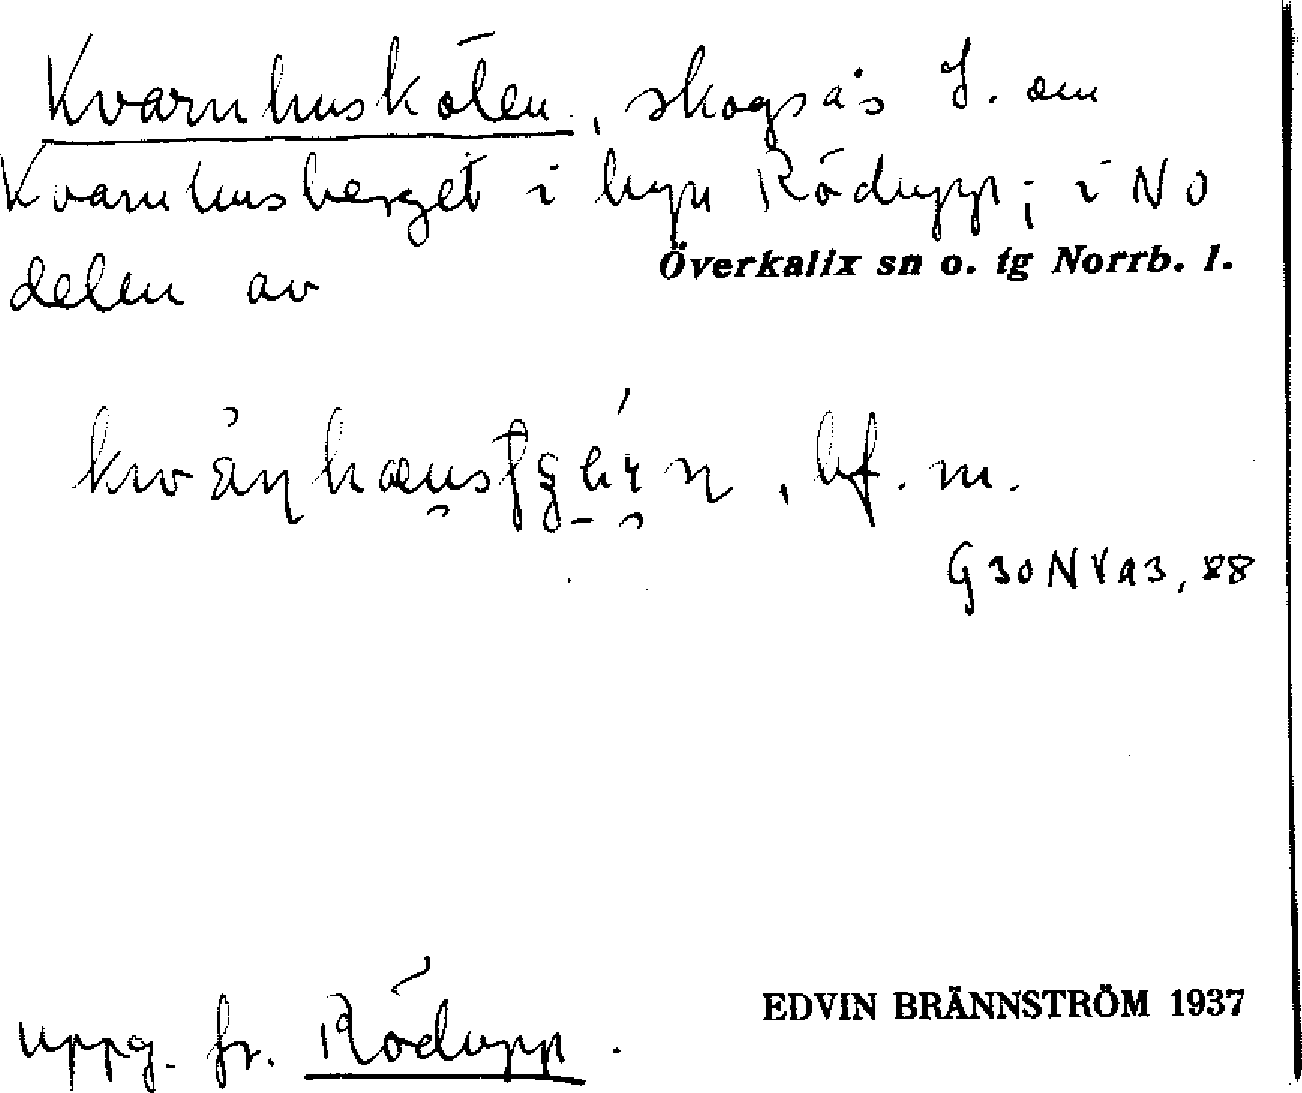 Kvarnhuskölen, skogsås S. om
Kvarnhusberget i byn Rödupp; i NO
delen av
Överkalix sn o. tg Norrb. l.
bf. m.
G30NVa3, 88
EDVIN BRÄNNSTRÖM 1937
uppg. fr. Rödupp.